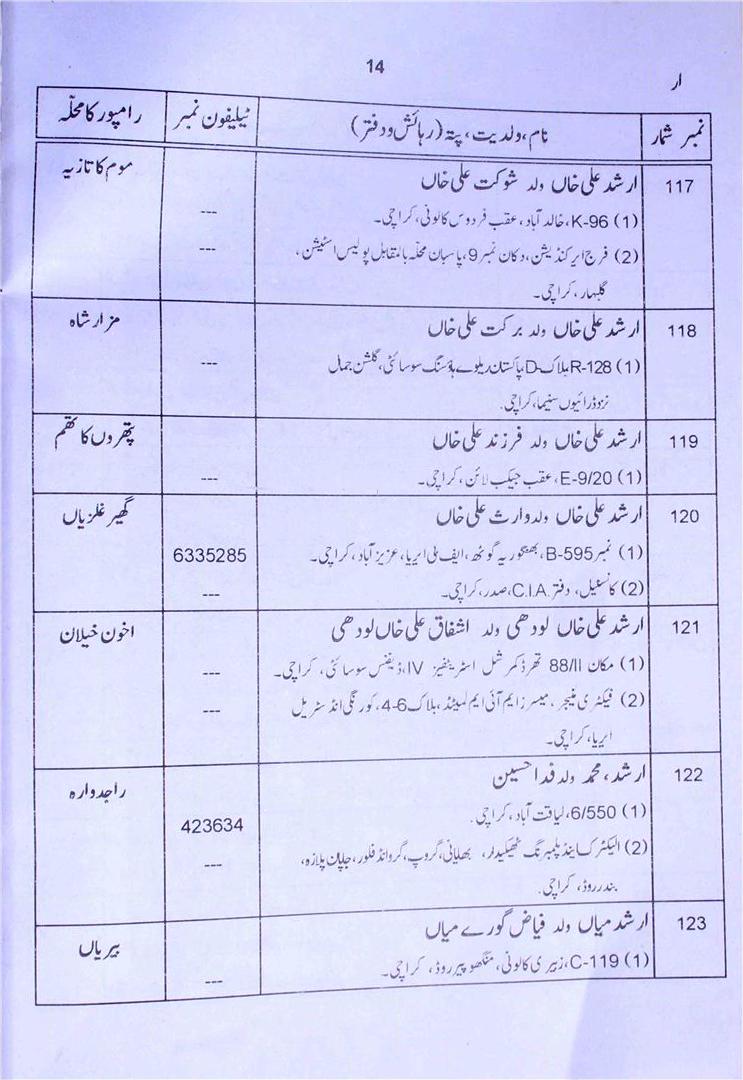 14
ار
نمبر شمار	نام، ولدیت، پتہ (رہائش و دفتر)	ٹیلیفون نمبر	رامپور کا محلّہ
117	ارشد علی خاں ولد شوکت علی خاں	موم کا تازیہ
(1) K-96، خالد آباد، عقب فردوس کالونی، کراچی۔	---
(2) فرج ایرکنڈیشن، دکان نمبر 9، پاسبان محلّہ بالمقابل پولیس اسٹیشن،	---
گلبہار، کراچی۔
118	ارشد علی خاں ولد برکت علی خاں	مزار شاہ
(1) R-128 بلاک-D، پاکستان ریلوے ہاؤسنگ سوسائٹی، گلشن جمال	---
نزد ڈرائیون سنیما، کراچی۔
119	ارشد علی خاں ولد فرزند علی خاں	پتھروں کا تھم
(1) E-9/20، عقب جیکب لائن، کراچی۔	---
120	ارشد علی خاں ولد وارث علی خاں	گھیر غلزیاں
(1) نمبر B-595، بھنگوریہ گوٹھ، ایف بی ایریا، عزیز آباد، کراچی۔	6335285
(2) کانسٹیبل، دفتر C.I.A، صدر، کراچی۔	---
121	ارشد علی خاں لودھی ولد اشفاق علی خاں لودھی	اخون خیلان
(1) مکان 88/II تھرڈ کمرشل اسٹریٹ فیز IV، ڈیفنس سوسائٹی، کراچی۔	---
(2) فیکٹری منیجر، میسرز ایم آئی ایم لمیٹڈ، بلاک 6-4، کورنگی انڈسٹریل	---
ایریا، کراچی۔
122	ارشد، محمد ولد فدا حسین	راجدوارہ
(1) 6/550، لیاقت آباد، کراچی۔	423634
(2) الیکٹرک اینڈ پلمبرنگ ٹھیکیدار، بھلائی، گروپ، گروانڈ فلور، جاپان پلازہ،	---
بندر روڈ، کراچی۔
123	ارشد میاں ولد فیاض گورے میاں	بیریاں
(1) C-119، زبیری کالونی، منگھوپیر روڈ، کراچی۔	---